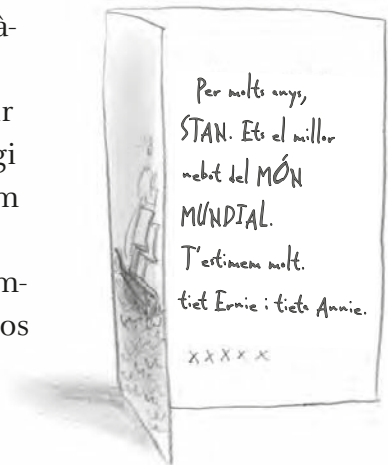 à-
r
gi
m
m-
os
Per molts anys,
STAN. Ets el millor
nebot del MÓN
MUNDIAL.
T'estimem molt.
tiet Ernie i tieta Annie.
x x x x x